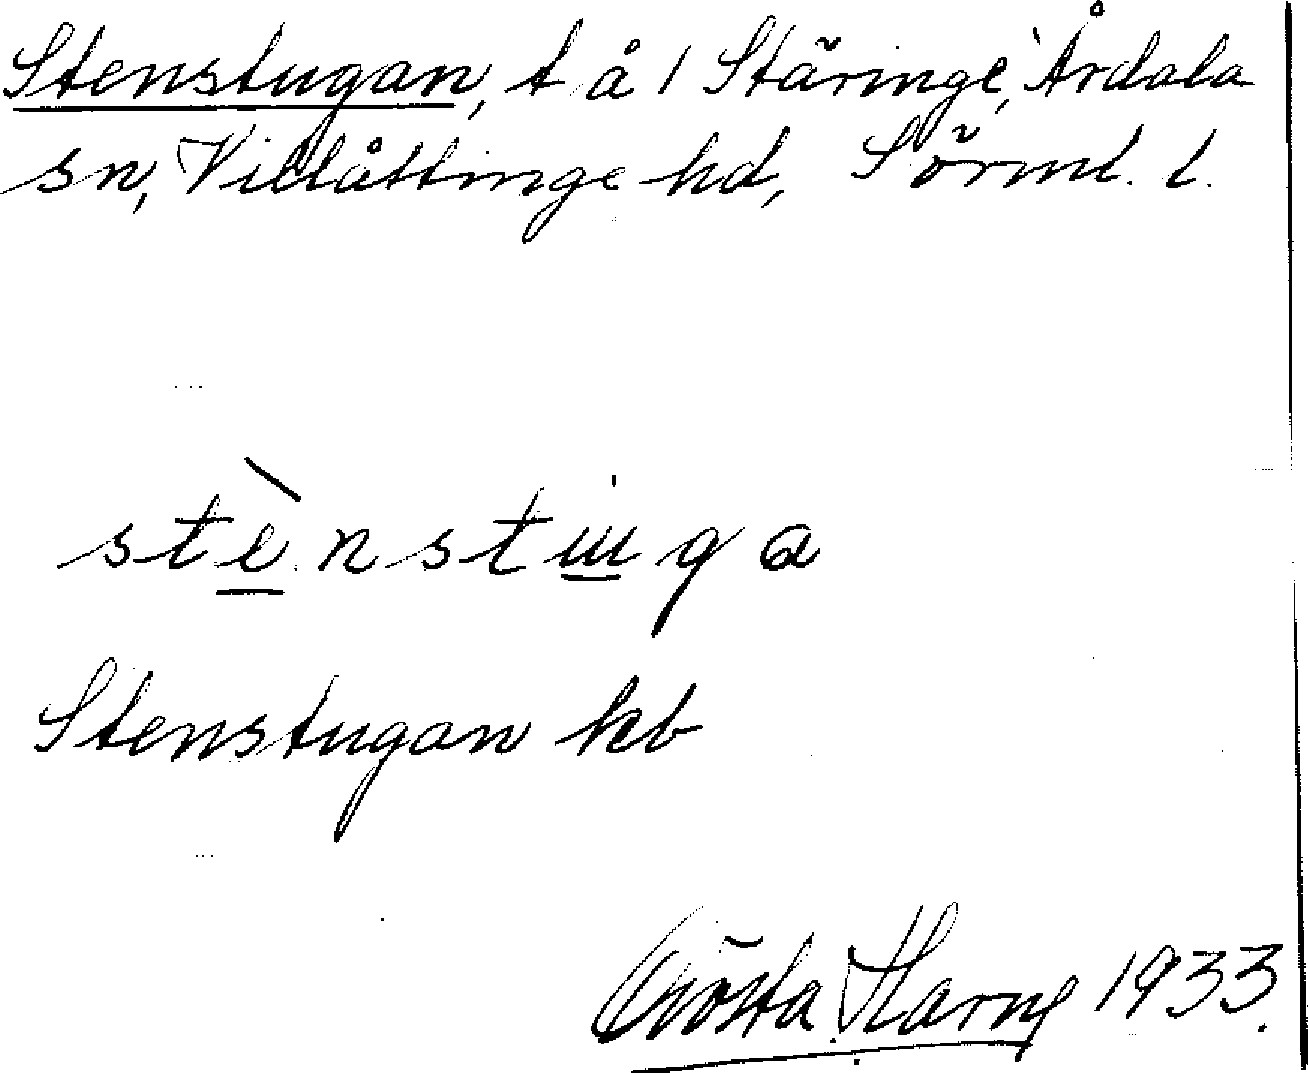 Stenstugan, t å / Stäringe, Årdala
sn, Villåttinge hd, Sörml. l.
stènstuga
Stenstugan kb
Gösta Harne 1933.